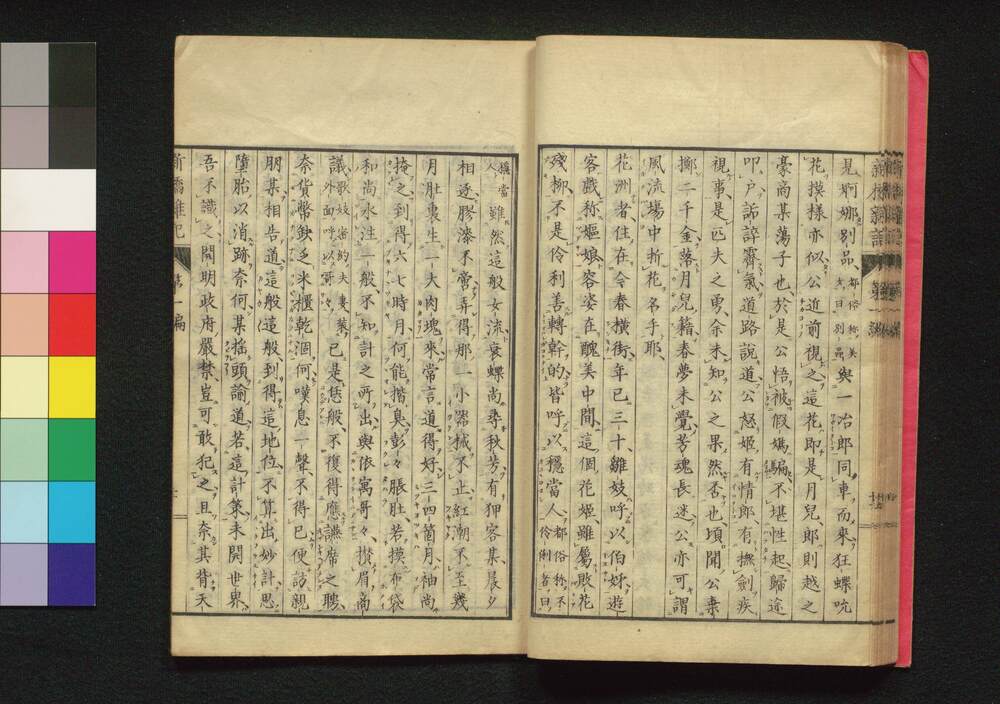 見婀娜別品都俗称美才曰別品與一冶郎同車而來狂蝶吭
花摸樣亦似公近前視之這花即是月兒郎則越之
豪商某蕩子也於是公悟被假媽騙不堪性起歸途
叩戶詬誶霽氣道路說道公怒姬有情郎有撫劍疾
視事是匹夫之勇余未知公之果然否也頃聞公棄
擲二千金落月兒籍春夢未覺芳魂長迷公亦可謂
風流場中折花名手耶
花洲者住在今春橫街年已三十雛妓呼以伯姊遊
客戲称嫗娘容姿在醜美中間這個花姬雖屬敗花
殘柳不是伶利善轉幹的皆呼以穩當人都俗称不伶俐者曰
穩當人雖然這般女流衰蝶尚尋秋芳有狎客某晨夕
相逐膠漆不啻弄得那一小器械不止紅潮不至幾
月肚裏生一大肉塊來常言道得好三四箇月袖尚
掩之到得六七時月何能揩臭彭々脹肚若摸布袋
和尚水注一般不知計之所出與依寓哥々攅眉商
議歌妓密約夫妻藥外面呼以哥々已是恁般不復得應讌席之聘
奈貨幣缺乏米櫃乾涸何嘆息一聲不得已便訪親
朋某相告道這般這般到得這地位不算出妙計思
墮胎以消跡奈何某搖頭諭道若這計策未開世界
吾不識之開明政府嚴禁豈可敢犯之且奈其背天
新橋雜記
第一編